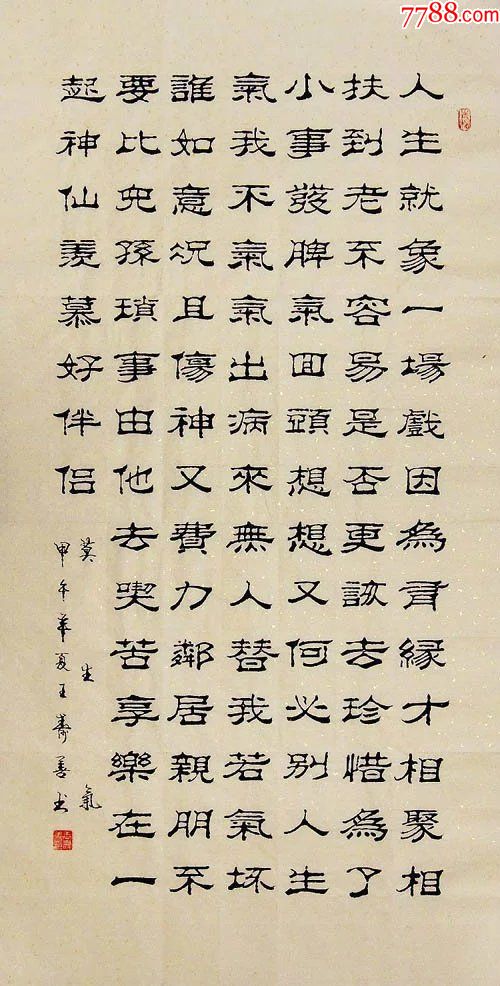 7788.com
人生就象一場戲因為有緣才相聚相
扶到老不容易是否更該去珍惜為了
小事發脾氣回頭想想又何必別人生
氣我不氣氣出病來無人替我若氣坏
誰如意況且傷神又費力鄰居親朋不
要比兒孫瑣事由他去喫苦享樂在一
起神仙羨慕好伴侶
莫生氣
甲午夏王壽善书